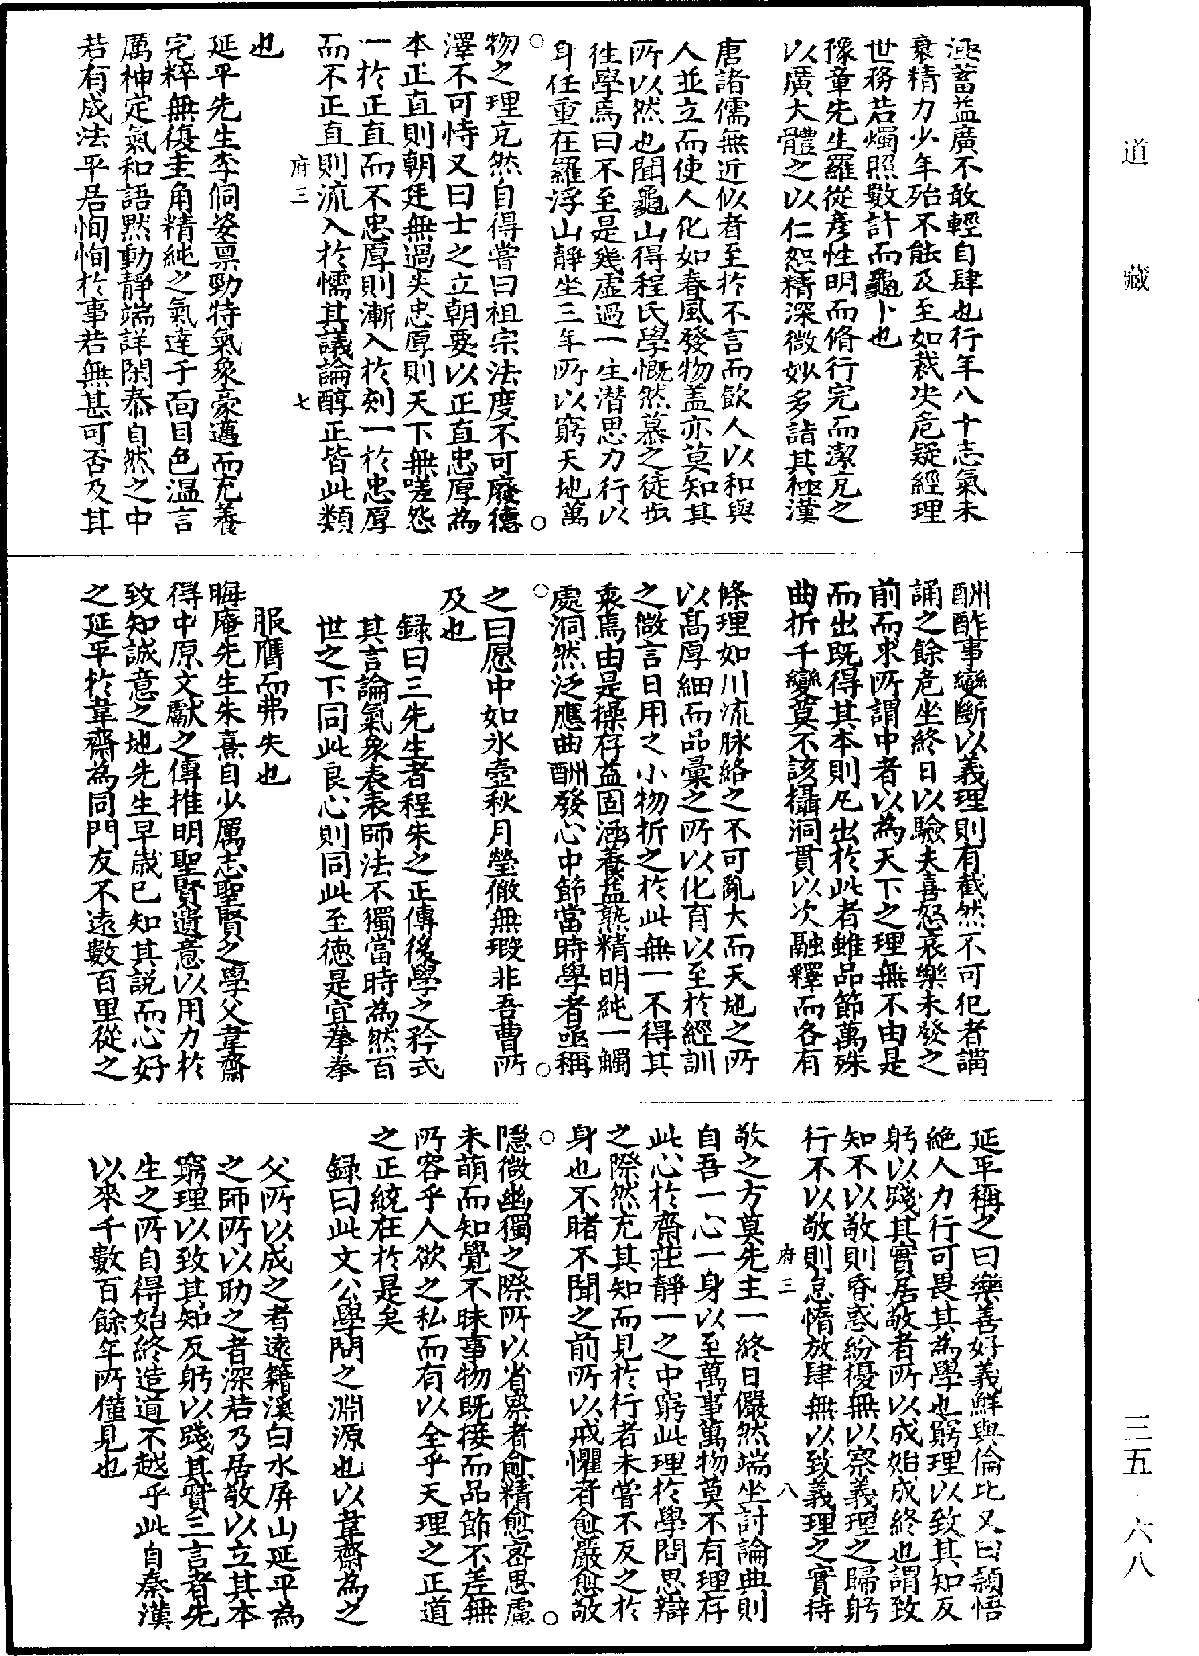 道藏
三五・六八
涵蓄益廣不敢輕自肆也行年八十志氣未
衰精力少年殆不能及至如裁决危疑經理
世務若燭照數計而龜卜也
豫章先生羅從彦性明而脩行完而潔充之
以廣大體之以仁恕精深微妙多詣其極漢
唐諸儒無近似者至於不言而飲人以和與
人並立而使人化如春風發物盖亦莫知其
所以然也聞龜山得程氏學慨然慕之徒步
徃學焉曰不至是幾虚過一生潜思力行以
身任重在羅浮山靜坐三年所以窮天地萬
物之理充然自得嘗曰祖宗法度不可廢德
澤不可恃又曰士之立朝要以正直忠厚為
本正直則朝廷無過失忠厚則天下無嗟怨
一於正直而不忠厚則漸入於刻一於忠厚
而不正直則流入於懦其議論醇正皆此類
府三
七
也
延平先生李侗姿禀勁特氣象豪邁而充養
完粹無復圭角精純之氣達于面目色温言
厲神定氣和語默動靜端詳閑泰自然之中
若有成法平居恂恂於事若無甚可否及其
酬酢事變斷以義理則有截然不可犯者講
誦之餘危坐終日以驗夫喜怒哀樂未發之
前而求所謂中者以為天下之理無不由是
而出既得其本則凡出於此者雖品節萬殊
曲折千變莫不該攝洞貫以次融釋而各有
條理如川流脉絡之不可亂大而天地之所
以高厚細而品彙之所以化育以至於經訓
之微言日用之小物折之於此無一不得其
衷焉由是操存益固涵養益熟精明純一觸
處洞然泛應曲酬發心中節當時學者亟稱
之曰愿中如氷壺秋月瑩徹無瑕非吾曹所
及也
録曰三先生者程朱之正傳後學之矜式
其言論氣象表表師法不獨當時為然百
世之下同此良心則同此至德是宜拳拳
服膺而弗失也
晦庵先生朱熹自少厲志聖賢之學父韋齋
得中原文獻之傳推明聖賢遺意以用力於
致知誠意之地先生早歲已知其説而心好
之延平於韋齋為同門友不遠數百里從之
延平稱之曰樂善好義鮮與倫比又曰頴悟
絶人力行可畏其為學也窮理以致其知反
躬以踐其實居敬者所以成始成終也謂致
知不以敬則昏惑紛擾無以察義理之歸躬
行不以敬則怠惰放肆無以致義理之實持
府三
八
敬之方莫先主一終日儼然端坐討論典則
自吾一心一身以至萬事萬物莫不有理存
此心於齋莊靜一之中窮此理於學問思辯
之際然充其知而見於行者未嘗不反之於
身也不睹不聞之前所以戒懼者愈嚴愈敬
隱微幽獨之際所以省察者愈精愈密思慮
未萌而知覺不昧事物既接而品節不差無
所容乎人欲之私而有以全乎天理之正道
之正統在於是矣
録曰此文公學問之淵源也以韋齋為之
父所以成之者遠籍溪白水屏山延平為
之師所以助之者深若乃居敬以立其本
窮理以致其知反躬以踐其實三言者先
生之所自得始終造道不越乎此自秦漢
以來千數百餘年所僅見也